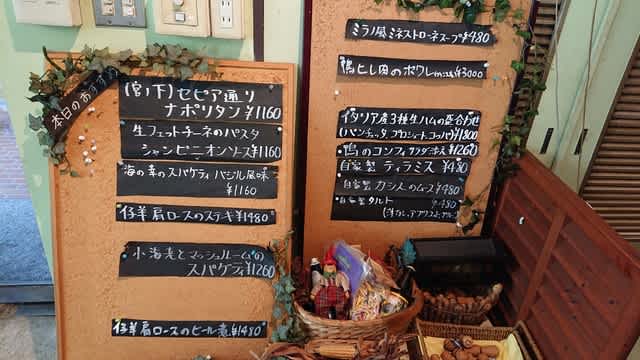 本日のおすすめ
(宮ノ下)セピア通り
ナポリタン ¥1160
生フェットチーネのパスタ
シャンピニオンソース¥1160
海の幸のスパゲティ バジル風味
¥1160
仔羊肩ロースのステキ¥1480
小海老とマッシュルームの
スパゲティ¥1260
仔羊肩ロースのビール煮¥1480
ミラノ風ミネストローネスープ¥480
鴨ヒレ肉のポワレ ¥3000
イタリア産3種生ハムの盛合わせ
(パンチェッタ、プロシュート、コッパ)¥1800
鴨のコンフィ ¥1260
自家製ティラミス ¥480
自家製カシスのムース¥480
自家製タルト ¥480